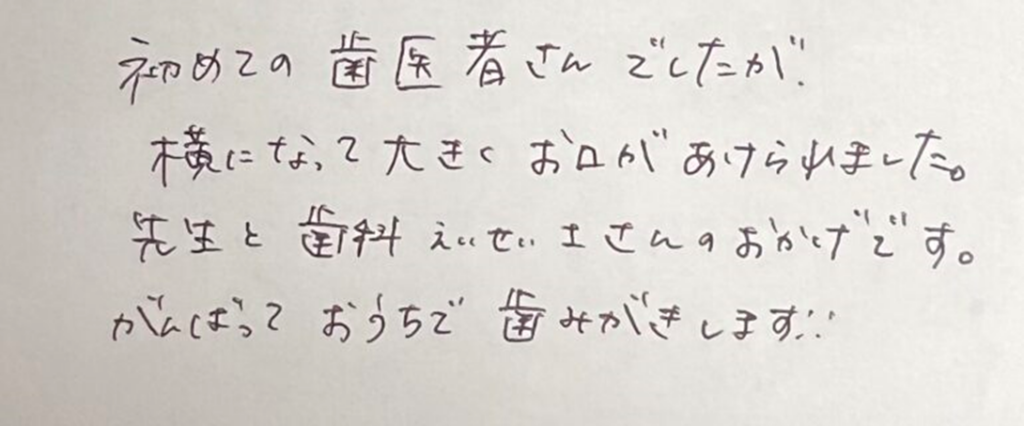 初めての歯医者さんでしたが、
横になって大きくお口があけられました。
先生と歯科えいせい士さんのおかげです。
がんばっておうちで歯みがきします